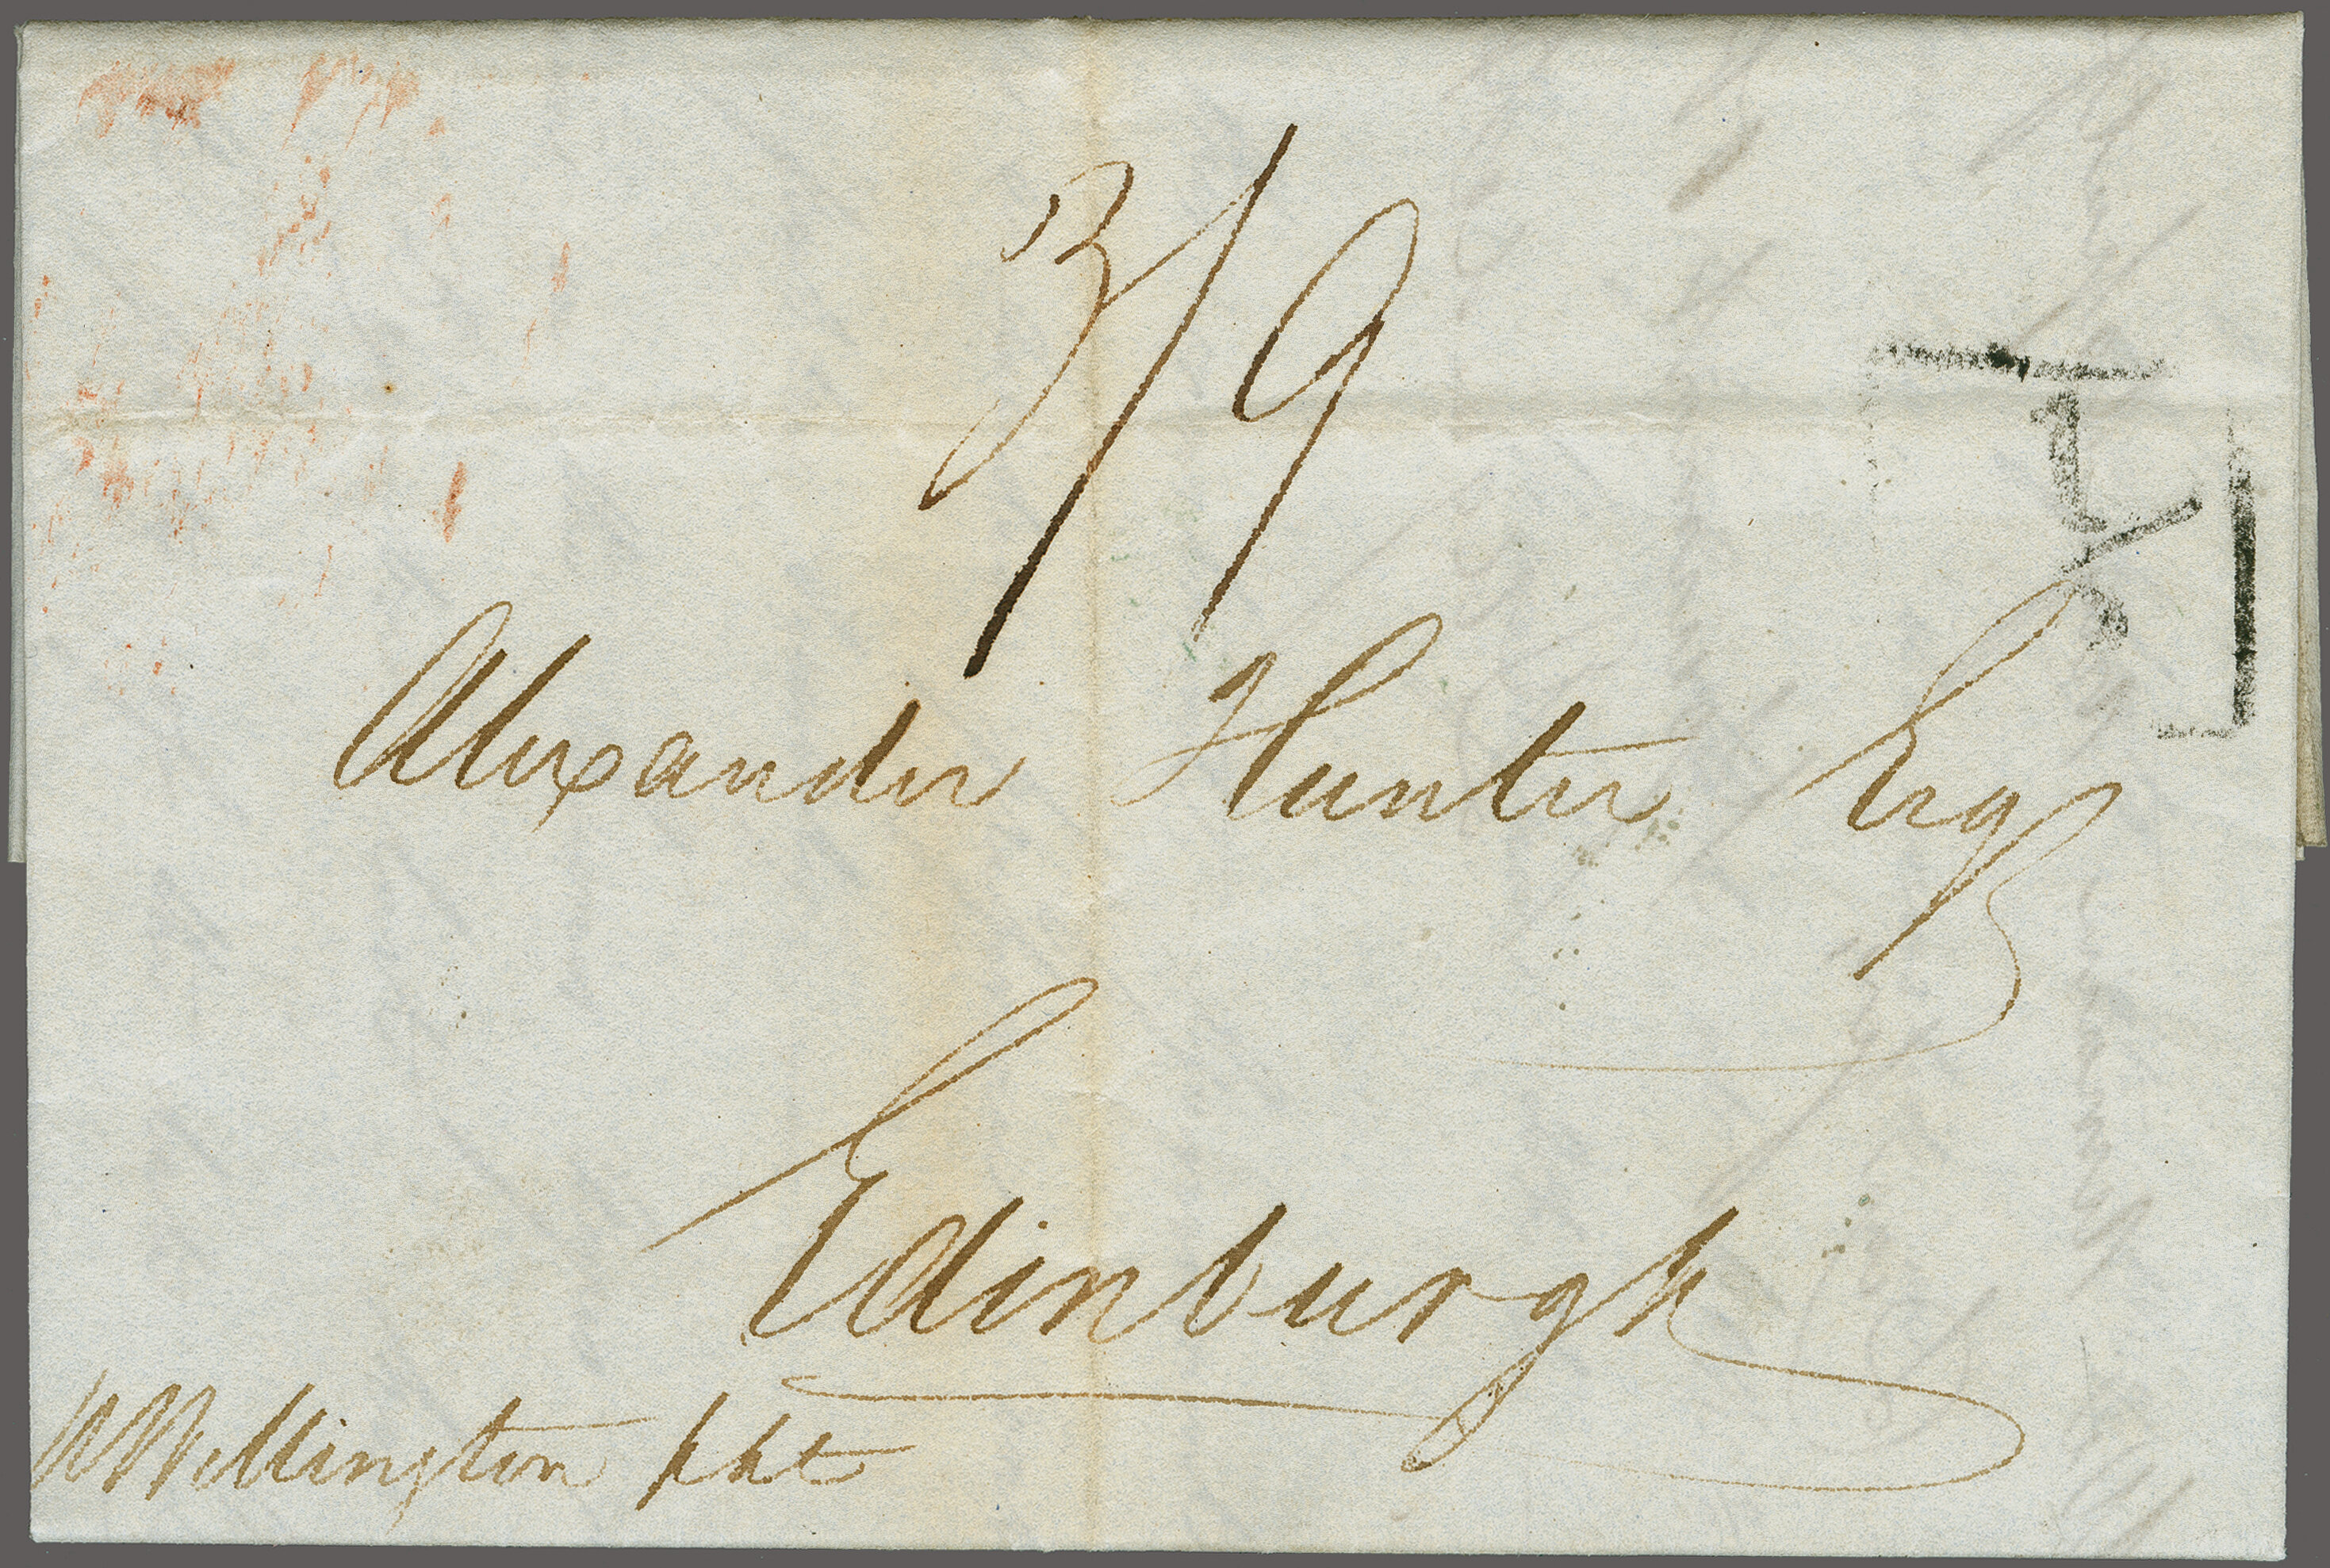 3/9
½
Alexander Hunter Esq
Edinburgh
Wellington pkt